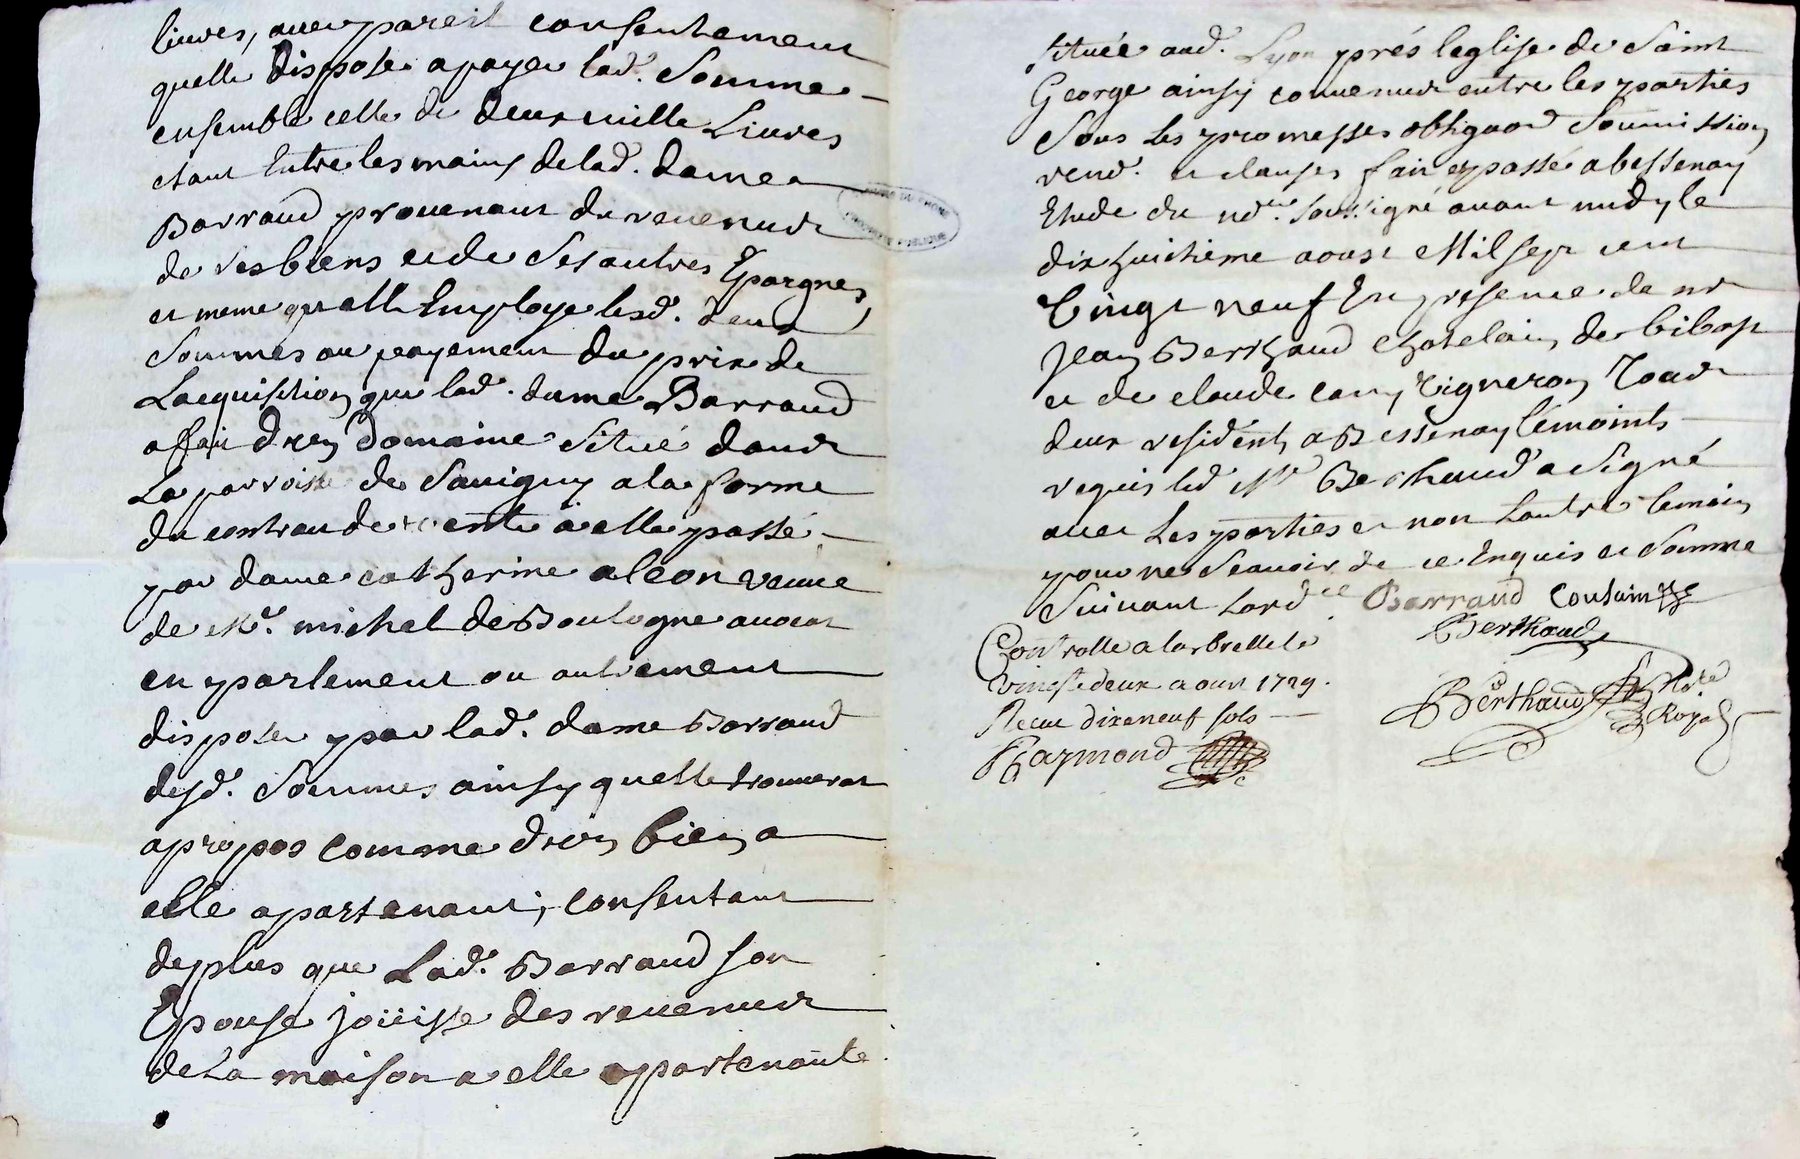 livres, avec pareil consentement
quelle dispose a payer lad. Somme
ensemble celle de deux mille Livres
etant Entre les mains de lad. dame
Barraud provenant du revenud
de ses biens et de Ses autres Epargnes
et meme quelle Employe lesd. deux
Sommes au payement du prix de
Lacquisition que lad. dame Barraud
a fait d'un Domaine Situé dans
La parroisse de Savigny a la forme
du contrau de vente a elle passé
par dame catherine aleon veuve
de Mr. michel de Boulogne avocat
en parlement ou autrement
disposer par lad. dame Barraud
desd. Sommes ainsy quelle trouverat
apropos comme d'un bien a
elle apartenant, consentant
de plus que Lad. Barraud son
Epouse joüisse des revenud
de La maison a elle appartenante
située aud. Lyon prés leglise de Saint
George ainsy convenud entre les parties
Sous Les promesses obligaon Soumission
renõn. et clauses fait et passé a bessenay
Etude du nore. soussigné avant midy le
dix huitieme aoust Mil sept cent
vingt neuf En presence de mr
Jean Berthaud chatelain de
et de claude vigneron Tous
deux residents a Bessenay témoints
requis led Mr Berthaud a Signé
avec Les parties et non Lautre temoin
pour ne Scavoir de ce Enquis et Sommé
Suivant Lordce Barraud Coutain
Berthaud
Controlle a larbrelle le
vingt deux aout 1729.
Recu dixneuf sols
Raymond
Berthaud Nore
Royal